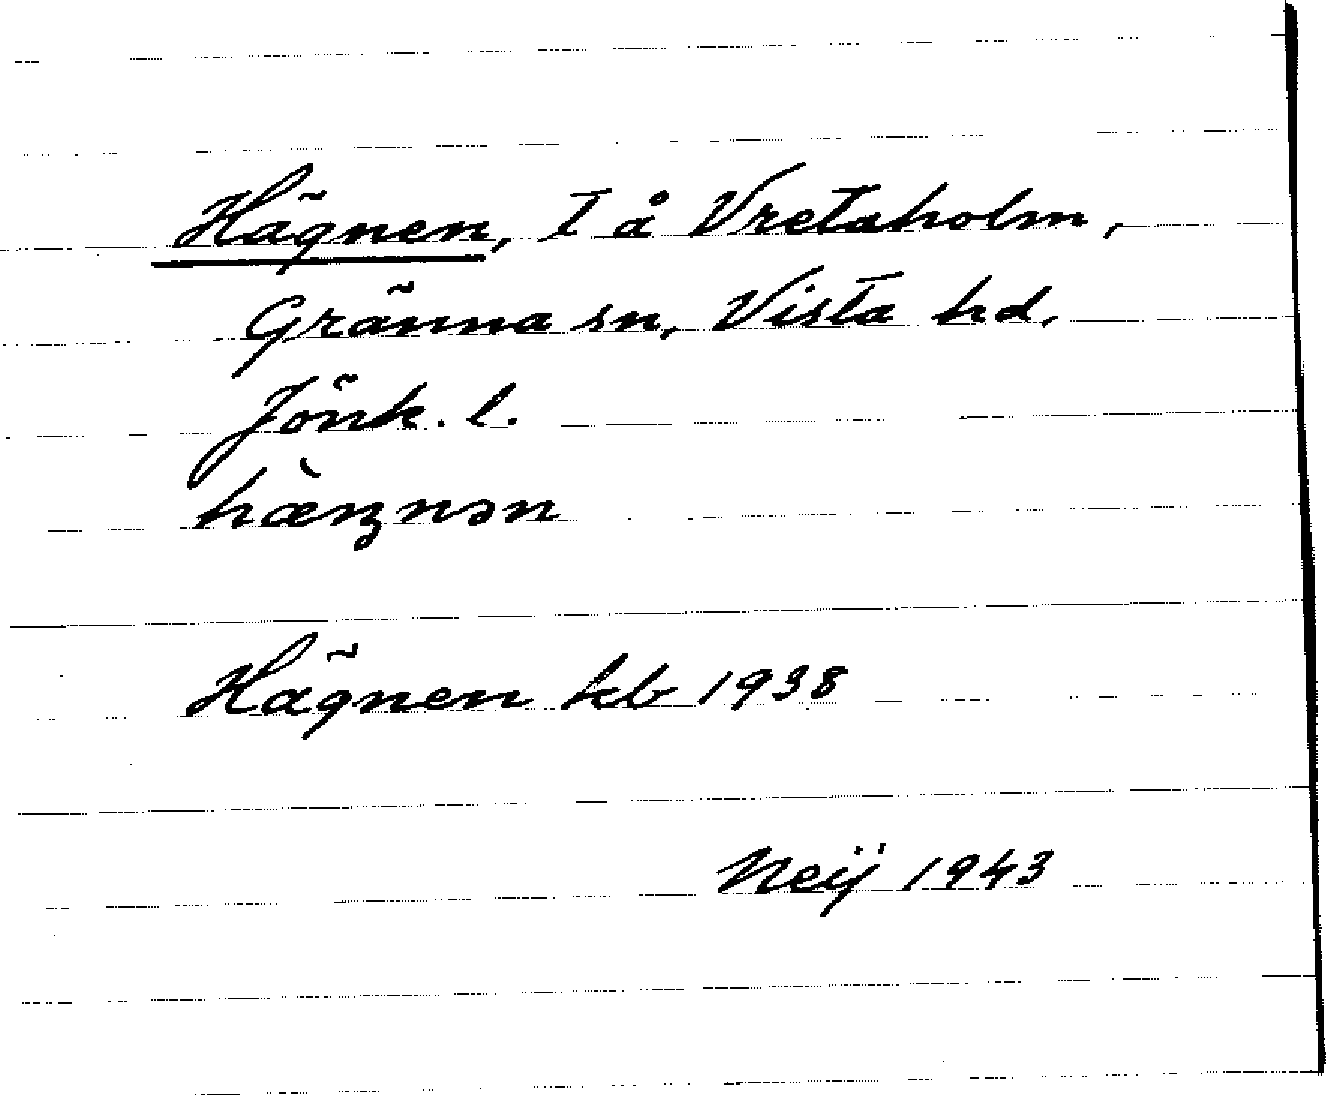 Hägnen, T å Vretaholm,
Gränna sn, Vista hd,
Jönk. l.
hæ̀ŋnən
Hägnen kb 1938
Neij 1943